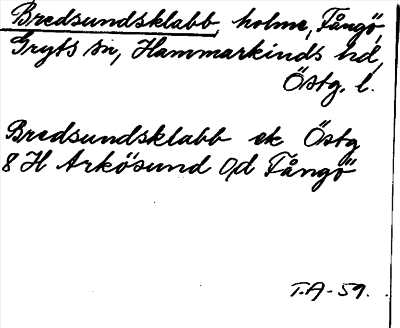 Bredsundsklabb, holme, Fångö,
Gryts sn, Hammarkinds hd,
Östg. l.
Bredsundsklabb ek Östg
8 H Arkösund o/d Fångö
T.A-59.